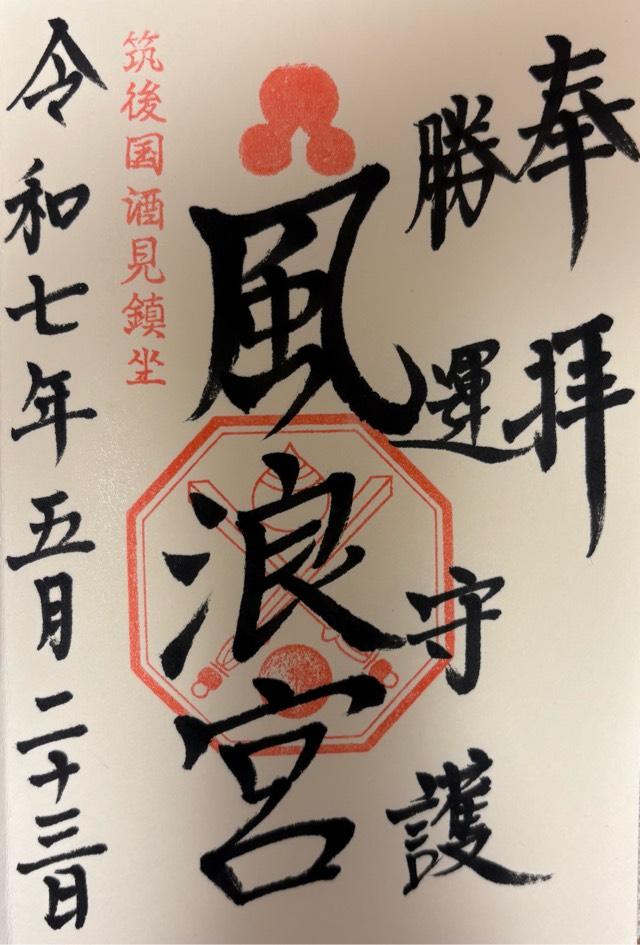 奉拝
勝運守護
風浪宮
筑後国酒見鎮坐
令和七年五月二十三日